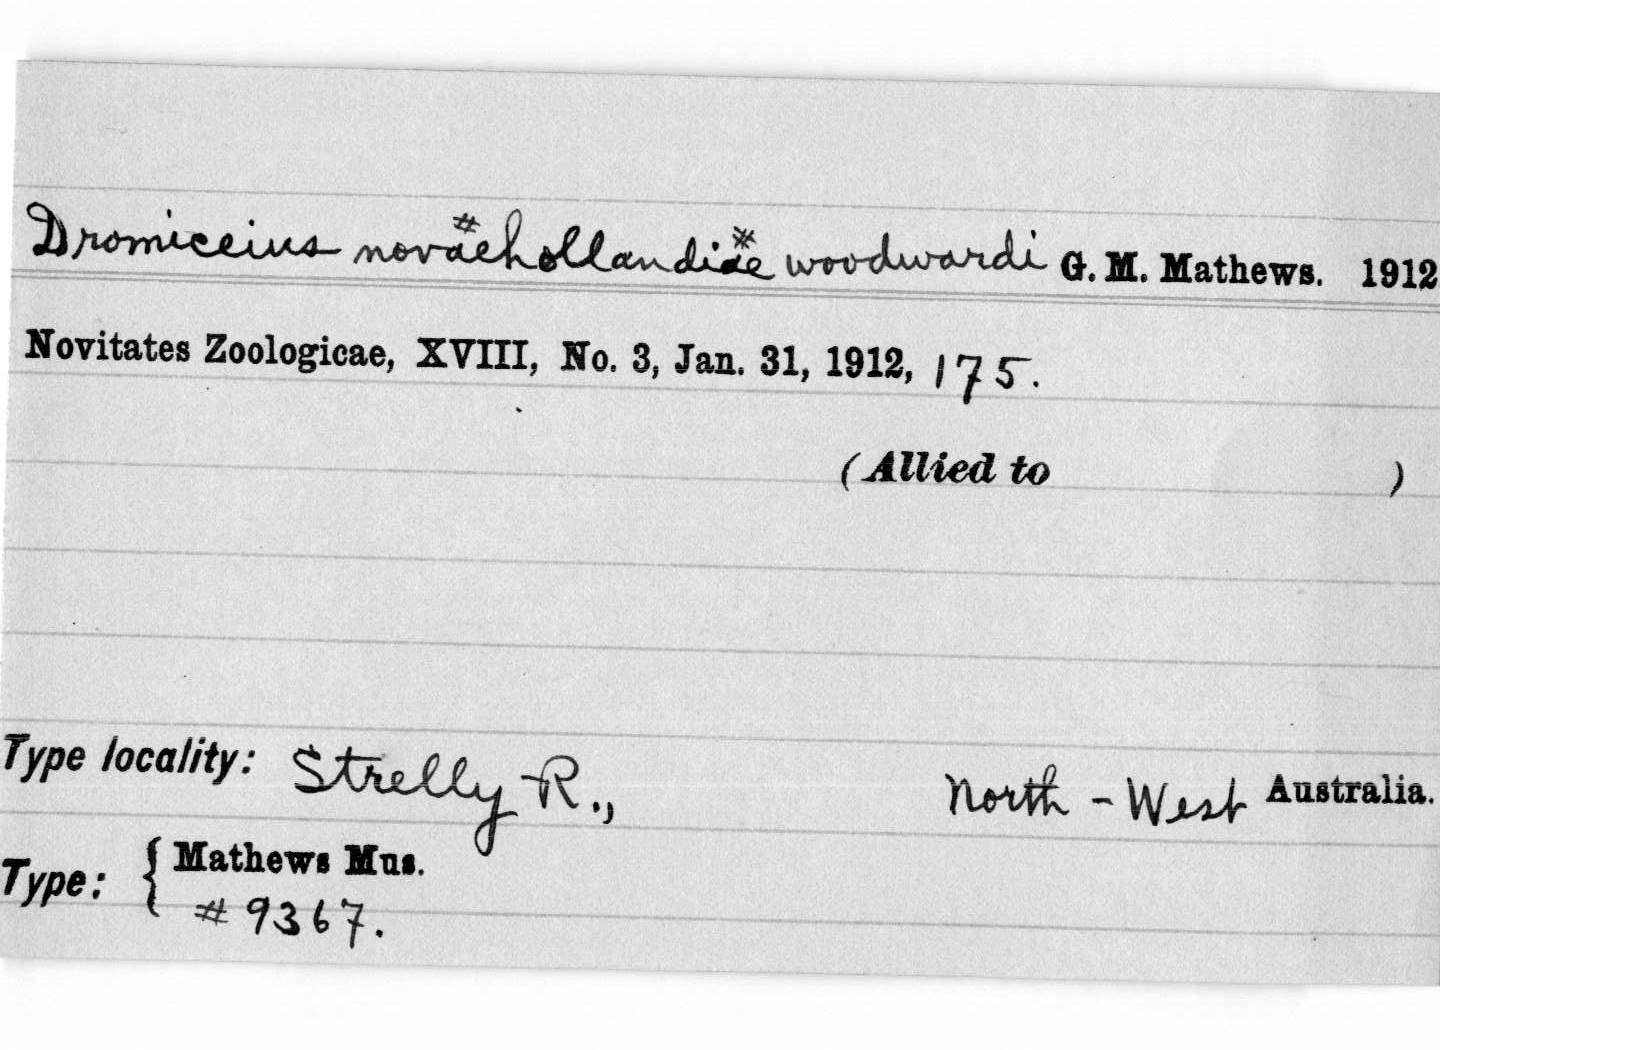 Dromiceius novaehollandiae woodwardi G. M. Mathews. 1912
Novitates Zoologicae, XVIII, No. 3, Jan. 31, 1912, 175.
(Allied to )
Type locality: Strelly R., North-West Australia.
Type: { Mathews Mus.
# 9367.